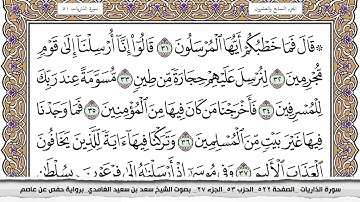 الجزء السابع والعشرون سورة الذاريات ٥١
۞ قَالَ فَمَا خَطْبُكُمْ أَيُّهَا ٱلْمُرْسَلُونَ ٣١ قَالُوٓا۟ إِنَّآ أُرْسِلْنَآ إِلَىٰ قَوْمٍ
مُّجْرِمِينَ ٣٢ لِنُرْسِلَ عَلَيْهِمْ حِجَارَةً مِّن طِينٍ ٣٣ مُّسَوَّمَةً عِندَ رَبِّكَ
لِلْمُسْرِفِينَ ٣٤ فَأَخْرَجْنَا مَن كَانَ فِيهَا مِنَ ٱلْمُؤْمِنِينَ ٣٥ فَمَا وَجَدْنَا
فِيهَا غَيْرَ بَيْتٍ مِّنَ ٱلْمُسْلِمِينَ ٣٦ وَتَرَكْنَا فِيهَآ ءَايَةً لِّلَّذِينَ يَخَافُونَ
ٱلْعَذَابَ ٱلْأَلِيمَ ٣٧ وَفِى مُوسَىٰٓ إِذْ أَرْسَلْنَٰهُ إِلَىٰ فِرْعَوْنَ بِسُلْطَٰنٍ
سورة الذاريات _الصفحة ٥٢٢ _الحزب ٥٣ _الجزء ٢٧ _ بصوت الشيخ سعد بن سعيد الغامدي _برواية حفص عن عاصم